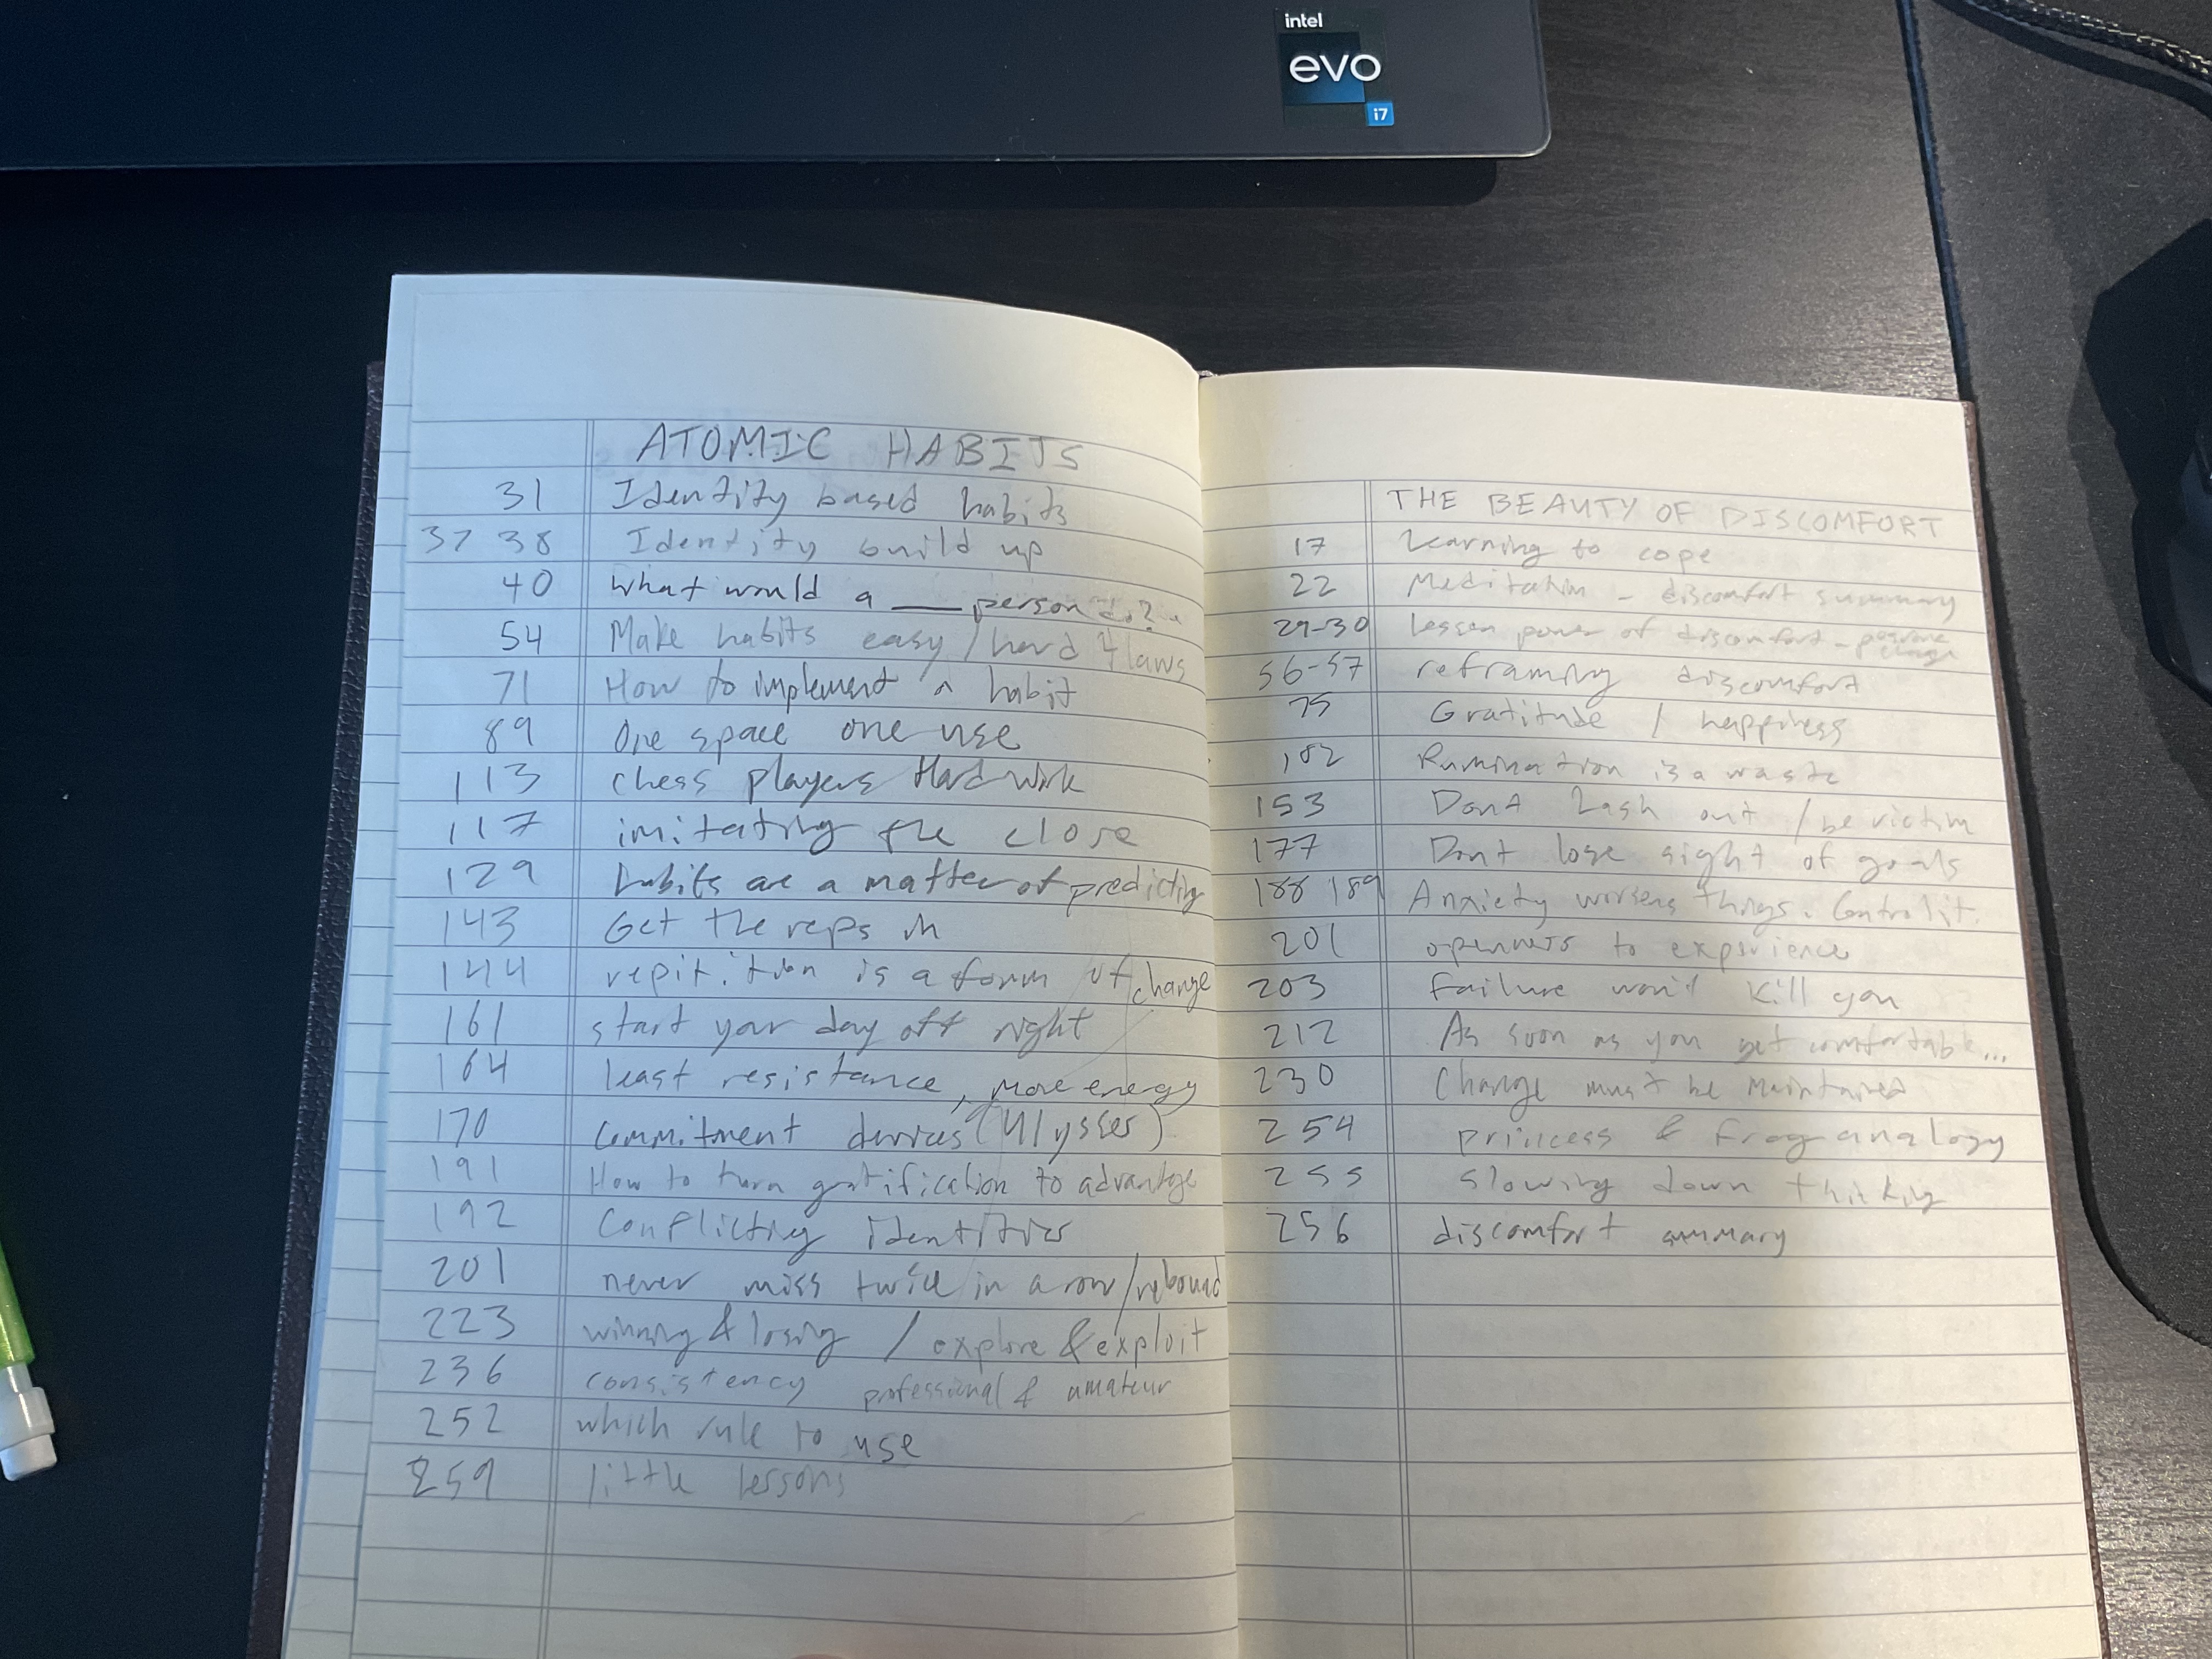 intel
evo
i7
ATOMIC HABITS
31 Identity based habits
37 38 Identity build up
40 What would a ___ person do?
54 Make habits easy / hard 4 laws
71 How to implement a habit
89 One space one use
113 chess players Hard work
117 imitating the close
129 habits are a matter of predicting
143 Get the reps in
144 repitition is a form of change
161 start your day off right
164 least resistance, more energy
170 Commitment devices (Ulysses)
191 How to turn gratification to advantage
192 Conflicting identities
201 never miss twice in a row/rebound
223 winning & losing / explore & exploit
236 consistency professional & amateur
252 which rule to use
259 little lessons
THE BEAUTY OF DISCOMFORT
17 Learning to cope
22 Meditation - discomfort summary
29-30 lessen power of discomfort - change
56-57 reframing discomfort
75 Gratitude / happiness
102 Rumination is a waste
153 Dont Lash out / be victim
177 Dont lose sight of goals
188 189 Anxiety worsens things. Control it.
201 openness to experience
203 Failure won't kill you
212 As soon as you get comfortable...
230 Change must be maintained
254 princess & frog analogy
255 slowing down thinking
256 discomfort summary